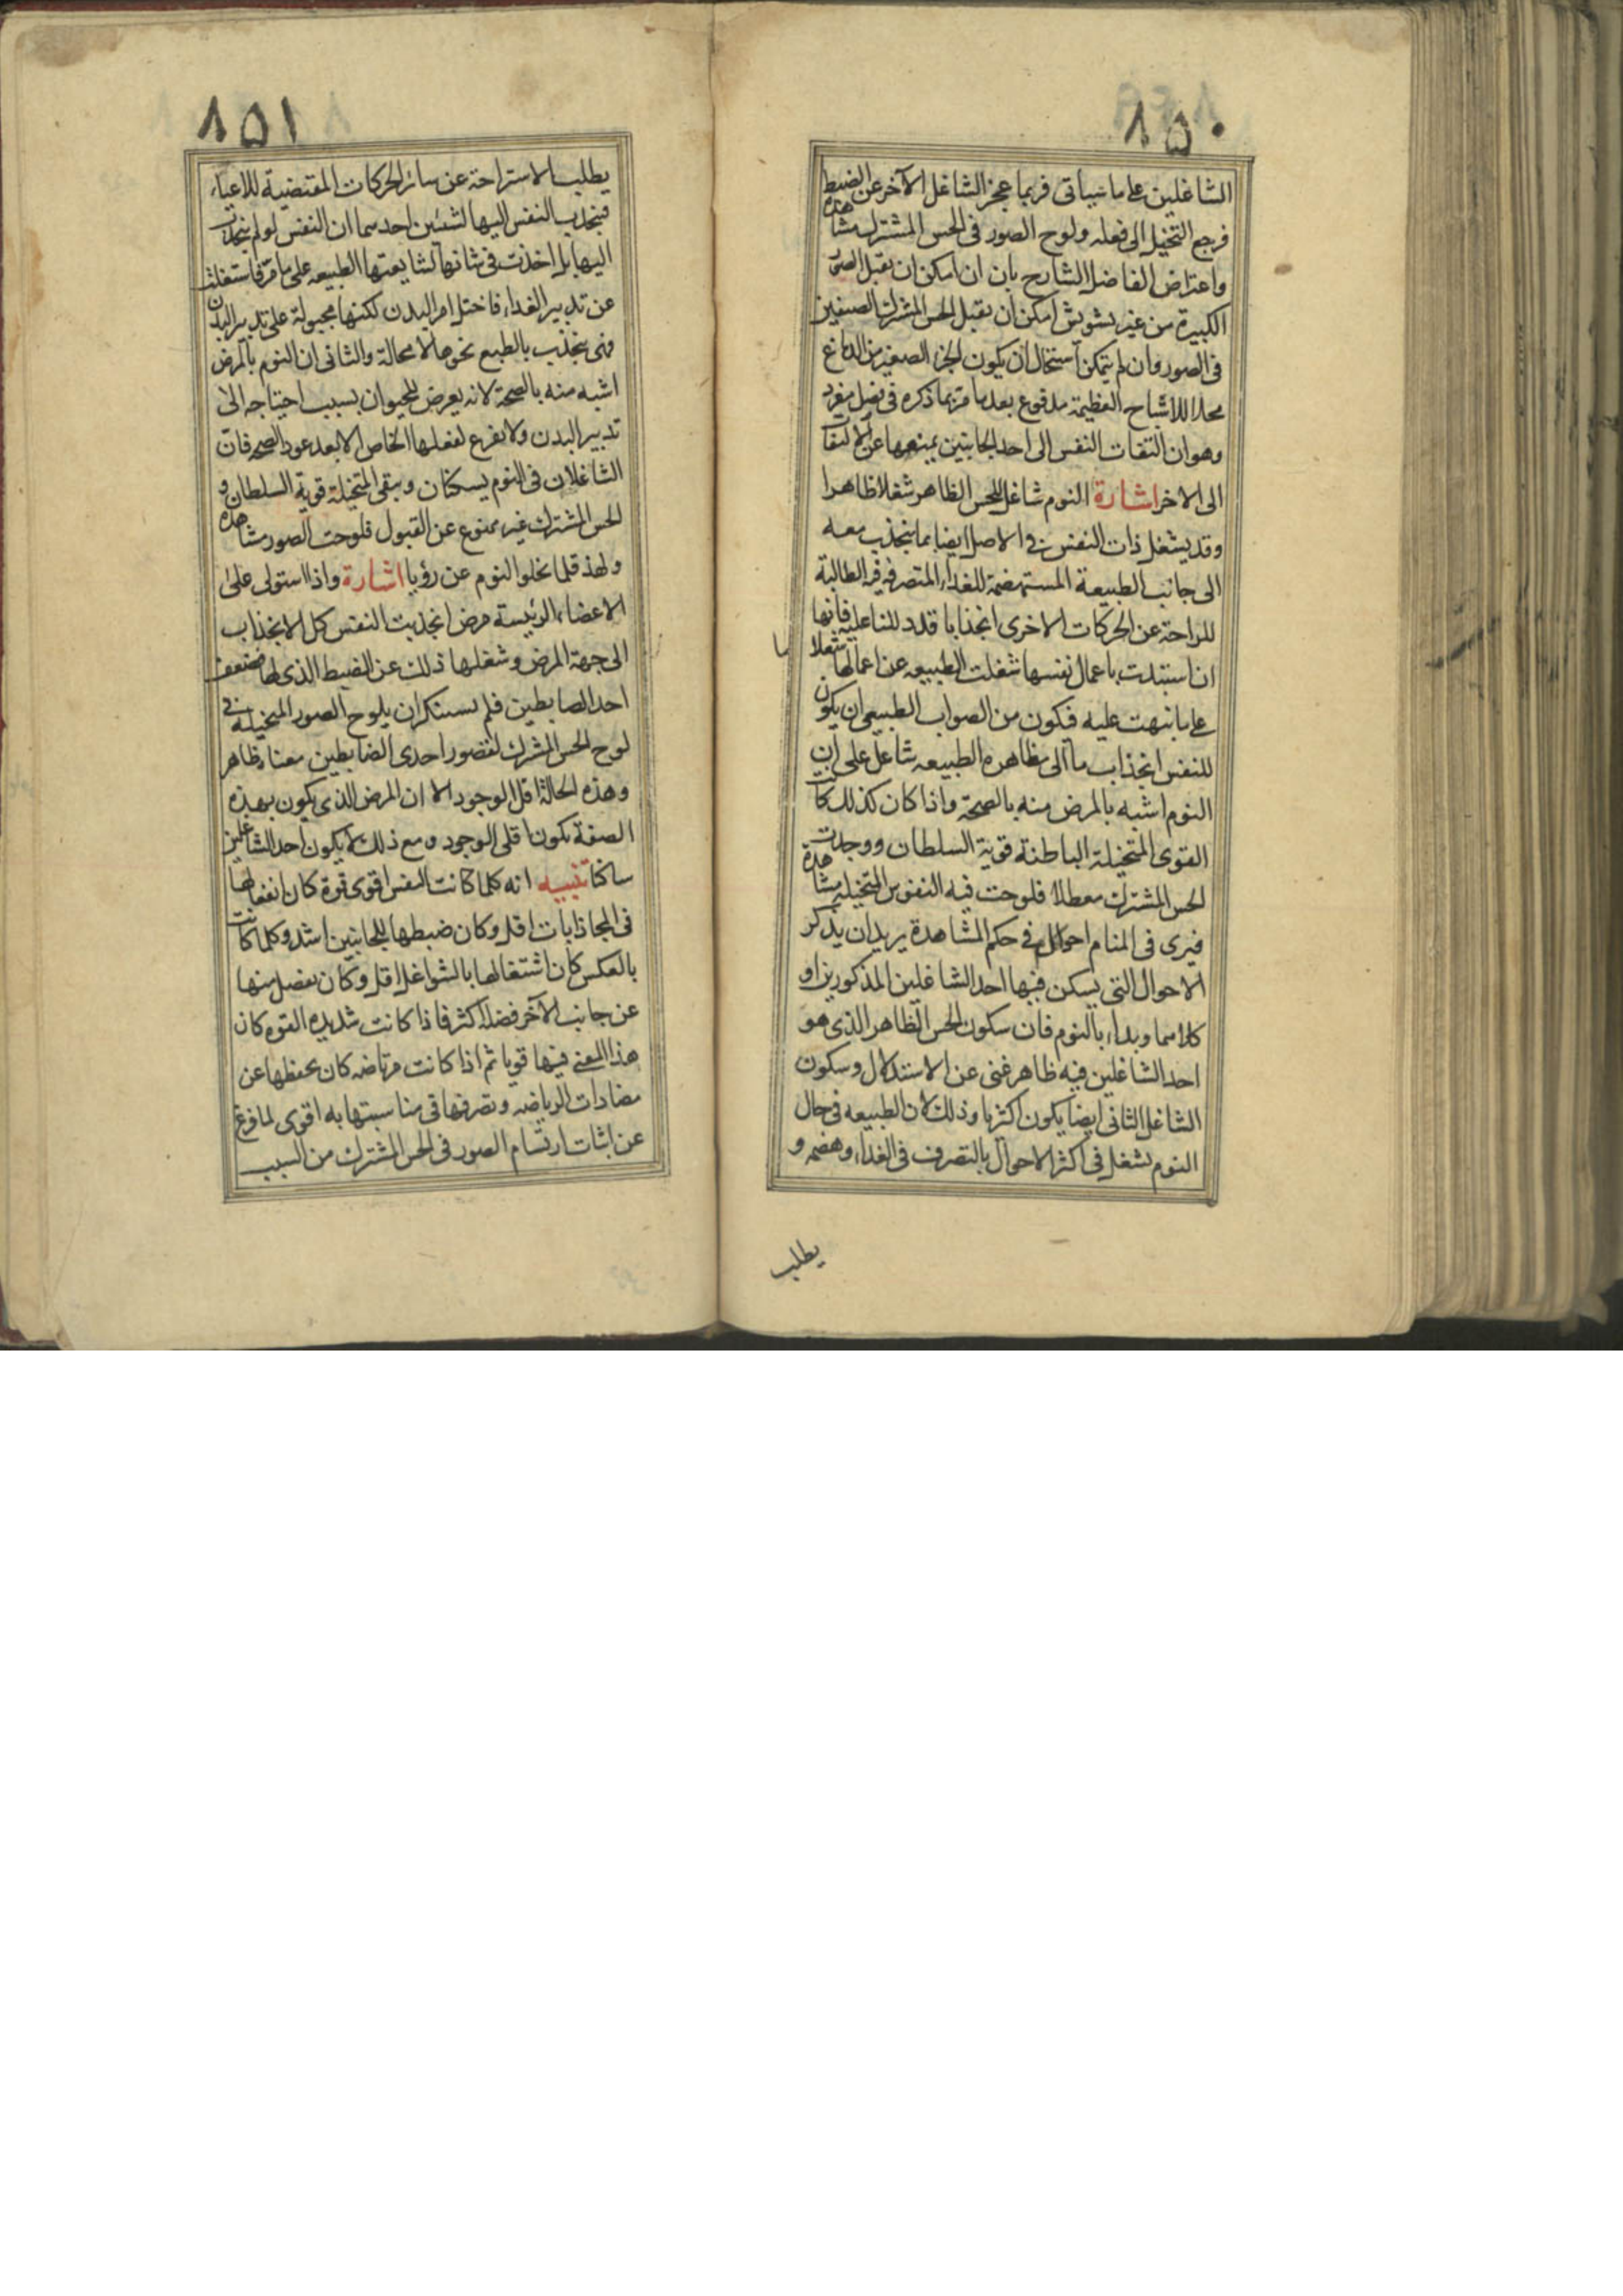 ١٥٠
الشاغلين على ما سيأتى فربما عجز الشاغل الآخر عن الضبط
فرجع التخيل الى فعله ولوح الصور فى الحس المشترك مشاهدة
واعتراض الفاضل الشارح بان ان امكن ان يقبل الصور
الكبيرة من غير تشويش امكن ان يقبل الحس المشترك الصنفين
فى الصور وان لم يتمكن استحال ان يكون الجزء الصغير من الدماغ
محلا للاشباح العظيمة مدفوع بعد ما مر بما ذكره فى فصل مفرد
وهو ان التفات النفس الى احد الجانبين يمنعها عن الالتفا
الى الاخر اشارة النوم شاغل للحس الظاهر شغلا ظاهرا
وقد يشغل ذات النفس فى الاصل ايضا بما ينجذب معه
الى جانب الطبيعة المستهضمة للغذاء المتصرفه فيه الطالبة
للراحة عن الحركات الاخرى انجذابا قد دللنا عليه فانها
ان استبدت باعمال نفسها شغلت الطبيعه عن اعمالها شغلا ما
على ما نبهت عليه فيكون من الصواب الطبيعى ان يكون
للنفس انجذاب ما الى مظاهرة الطبيعه شاغل على ان
النوم اشبه بالمرض منه بالصحة واذا كان كذلك كانت
القوى المتخيلة الباطنة قوية السلطان ووجدت
الحس المشترك معطلا فلوحت فيه النفوس المتخيلة مشاهدة
فيرى فى المنام احوال فى حكم المشاهدة يريد ان يذكر
الاحوال التى يسكن فيها احد الشاغلين المذكورين او
كلاهما وبداء بالنوم فان سكون الحس الظاهر الذى هو
احد الشاغلين فيه ظاهر غنى عن الاستدلال وسكون
الشاغل الثانى ايضا يكون اكثريا وذلك لان الطبيعه فى حال
النوم يشغل فى اكثر الاحوال بالتصرف فى الغذاء وهضمه و
يطلب
١٥١
يطلب الاستراحة عن سائر الحركات المقتضية للاعياء
فينجذب النفس اليها لشيئين احدهما ان النفس لو لم ينجذب
اليها بل اخذت فى شانها لشايعتها الطبيعه على ما مر فاشتغلت
عن تدبير الغداء فاختل امر البدن لكنها مجبولة على تدبير البدن
فهى ينجذب بالطبع نحوها لا محالة والثانى ان النوم بالمرض
اشبه منه بالصحة لانه يعرض للحيوان بسبب احتياجه الى
تدبير البدن ولا يفرغ لفعلها الخاص الا بعد عود الصحه فان
الشاغلان فى النوم يسكنان ويبقى المتخيلة قوية السلطان و
الحس المشترك غير ممنوع عن القبول فلوحت الصور مشاهدة
ولهذا قلما يخلوا النوم عن رؤيا اشارة واذا استولى على
الاعضاء الرئيسة مرض انجذبت النفس كل الانجذاب
الى جهة المرض وشغلها ذلك عن الضبط الذى لها فضعف
احد الضابطين فلم يستنكر ان يلوح الصور المتخيلة فى
لوح الحس المشترك لقصور احدى الضابطين معناه ظاهر
وهذه الحالة اقل الوجود الا ان المرض الذى يكون بهذه
الصفة يكون اقلى الوجود ومع ذلك لا يكون احد الشاغلين
ساكنا تنبيه انه كلما كانت النفس اقوى قوة كان انفعالها
فى المجاذبات اقل وكان ضبطها للجانبين اشد وكلما كانت
بالعكس كان اشتغالها بالشواغل اقل وكان يفضل منها
عن جانب الآخر فضلة اكثر فاذا كانت شديده القوه كان
هذا المعنى فيها قويا ثم اذا كانت مرتاضه كان تحفظها عن
مضادات الرياضه وتصرفها فى مناسبتها به اقوى لما فرغ
عن اثبات ارتسام الصور فى الحس المشترك من السبب